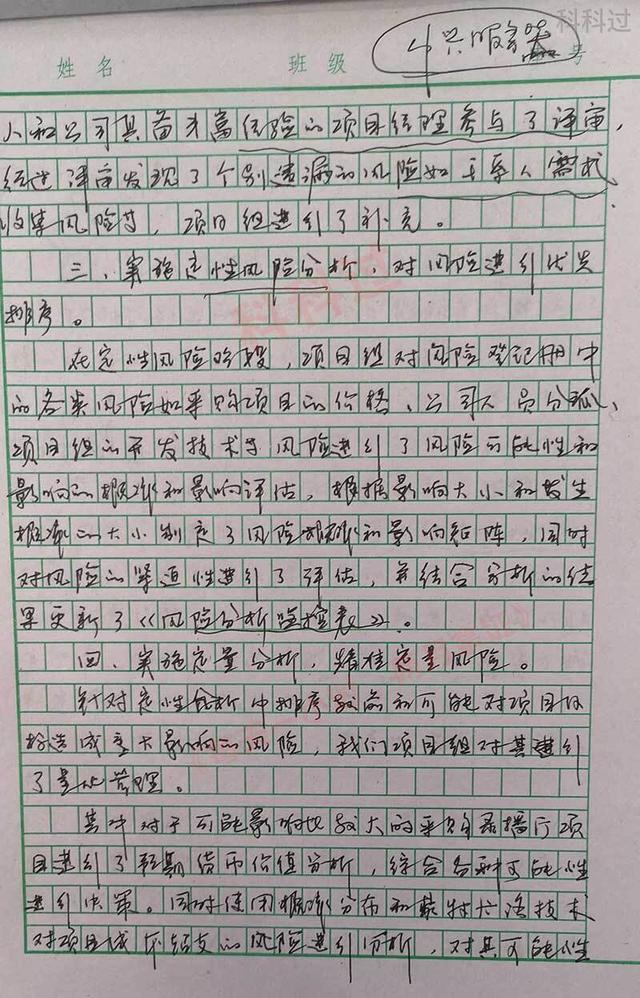 科科过
姓名 班级 号
中兴服务器
人和公司具备丰富经验的项目经理参与了评审,
经过评审发现了个别遗漏的风险如干系人需求
收集风险等,项目组进行了补充。
三、实施定性风险分析,对风险进行优先
排序。
在定性风险阶段,项目组对风险登记册中
的各类风险如采购项目的价格、公司人员分
项目组的开发技术等风险进行了风险可能性和
影响的概率和影响评估,根据影响大小和发生
概率的大小制定了风险概率和影响矩阵,同时
对风险的紧迫性进行了评估,并结合分析的结
果更新了《风险分析 检表》。
四、实施定量分析,精准定量风险。
针对定性分析中排序较前和可能对项目目
标造成重大影响的风险,我们项目组对其进行
了量化管理。
其中对于可能影响比较大的采购录播厅项
目进行了预期货币价值分析,综合各种可能性
进行决策。同时使用概率分布和蒙特卡洛技术
对项目成本 的风险进行分析,对其可能性